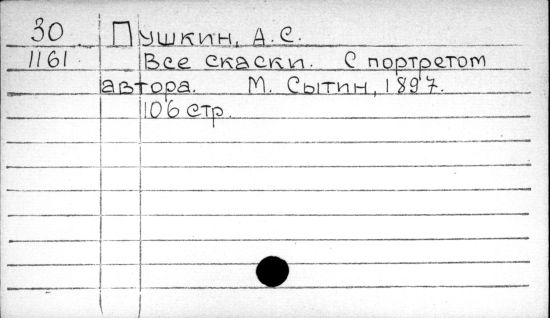 30 Пушкин, А.С.
1161 Все скаски. С портретом
автора. М. Сытин, 1897.
106 стр.